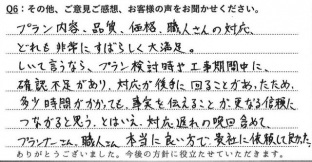 Q6:その他、ご意見ご感想、お客様の声をお聞かせください。
プラン内容、品質、価格、職人さんの対応、
どれも非常にすばらしく大満足。
しいて言うなら、プラン検討時や工事期間中に、
確認不足があり、対応が後手に回ることがあったため、
多少時間がかかっても、事実を伝えることが更なる信頼に
つながると思う。とはいえ、対応遅れの挽回含めて、
プランナーさん、職人さん本当に良い方で貴社に依頼して良かった。
ありがとうございました。今後の方針に役立たせていただきます。